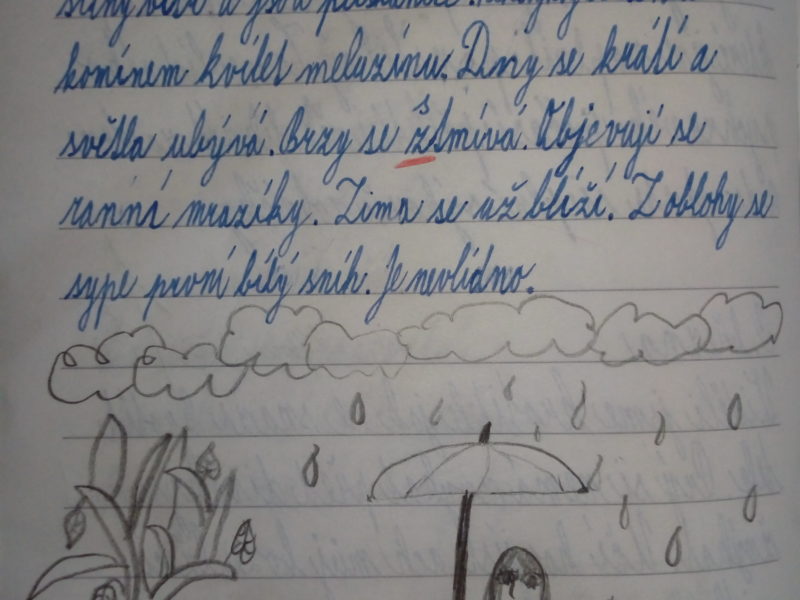 komínem kvílet meluzínu. Dny se krátí a
světla ubývá. Brzy se stmívá. Objevují se
ranní mrazíky. Zima se už blíží. Z oblohy se
sype první bílý sníh. Je nevlídno.